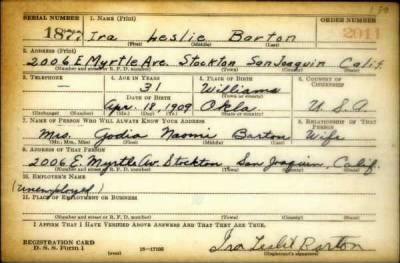 SERIAL NUMBER 1. NAME (Print) ORDER NUMBER
1877 Ira Leslie Barton 2011
(First) (Middle) (Last)
2. ADDRESS (Print)
2006 E. Myrtle Ave. Stockton San Joaquin Calif.
(Number and street or R. F. D. number) (Town) (County) (State)
3. TELEPHONE 4. AGE IN YEARS 5. PLACE OF BIRTH 6. COUNTRY OF CITIZENSHIP
— 31 Williams
DATE OF BIRTH (Town or county)
Apr. 18, 1909 Okla. U. S. A.
(Exchange) (Number) (Mo.) (Day) (Yr.) (State or country)
7. NAME OF PERSON WHO WILL ALWAYS KNOW YOUR ADDRESS 8. RELATIONSHIP OF THAT PERSON
Mrs. Godia Naomi Barton Wife
(Mr., Mrs., Miss) (First) (Middle) (Last)
9. ADDRESS OF THAT PERSON
2006 E. Myrtle Av. Stockton San Joaquin, Calif.
(Number and street or R. F. D. number) (Town) (County) (State)
10. EMPLOYER'S NAME
(unemployed)
11. PLACE OF EMPLOYMENT OR BUSINESS
(Number and street or R. F. D. number) (Town) (County) (State)
I AFFIRM THAT I HAVE VERIFIED ABOVE ANSWERS AND THAT THEY ARE TRUE.
REGISTRATION CARD
D. S. S. Form 1 (over) 16—17105 Ira Leslie Barton
(Registrant's signature)